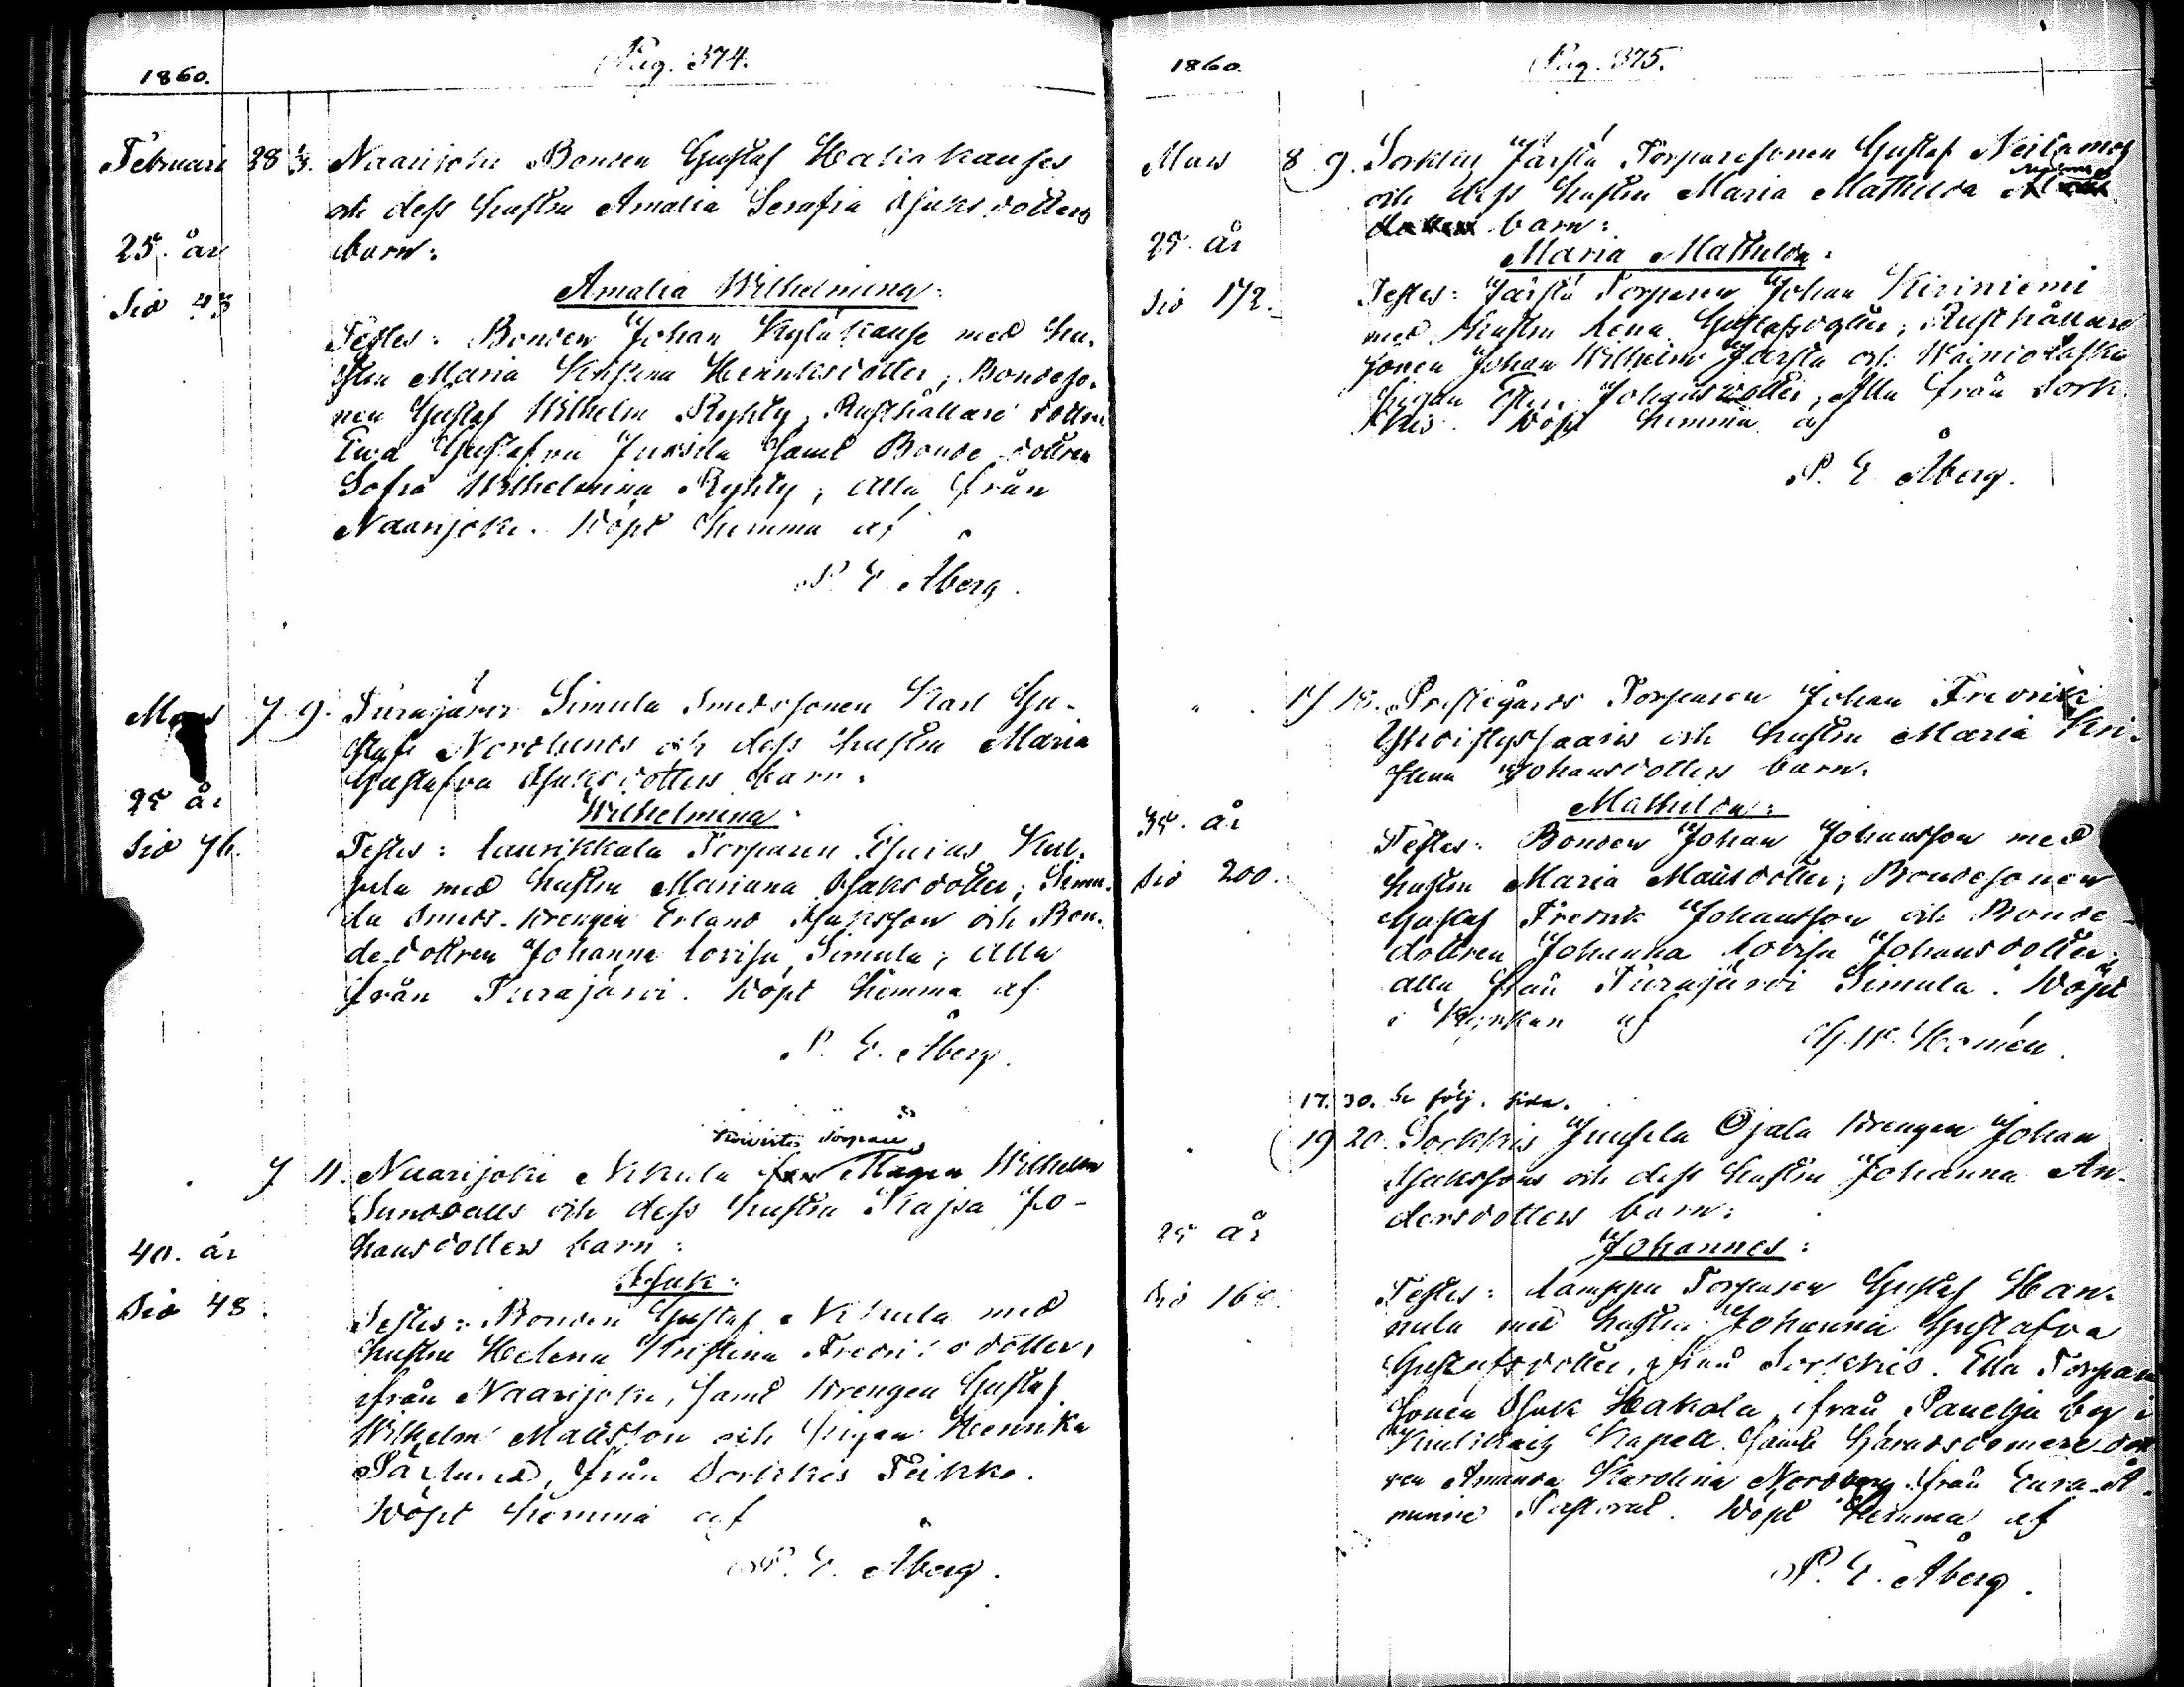 1860.
Pag. 374.
Februari 28 1/3. Naarijoki Bonden Gustaf Haliakauses
och dess hustru Amalia Serafia Isaksdotters
25. år barn:
Amalia Wilhelmina:
Sid 43
Testes: Bonden Johan Kyläkause med hu-
stru Maria Kristina Henriksdotter; Bondeso-
nen Gustaf Wilhelm Ryhty, Rusthållare dottren
Ewa Gustafva Jussila samt Bonde dottren
Sofia Wilhelmina Ryhty; alla från
Naarijoki. Döpt hemma af
P. E. Åberg.
Mars 7 9. Turajärvi Simula Smedssonen Karl Gu-
stafs Nordlunds och dess hustru Maria
Gustafva Isaksdotters barn:
25 år
Wilhelmina:
Sid 76.
Testes: Laurikkala Torparen Esaias
med hustru Mariana Isaksdotter; Simu-
la Smeds-drengen Erland Isaksson och Bon-
dedottren Johanna Lovisa Simula; alla
från Turajärvi. Döpt hemma af
P. E. Åberg.
7 11. Naarijoki Nikula Wilhelm
Sundvalls och dess hustru Kajsa Jo-
hansdotters barn:
40. år
Isak:
Sid 48.
Testes: Bonden Gustaf Nikula med
hustru Helena Kristina Fredriksdotter,
från Naarijoki, samt drengen Gustaf
Wilhelm Mattsson och pigan Henrika
från Sorkkis Peikko.
Döpt hemma af
P. E. Åberg.
1860.
Pag. 375.
Mars 8 9. Sorkkis Järstä Torparesonen Gustaf
och dess hustru Maria Mathilda
barn:
25. år
Maria Mathilda:
Sid 172.
Testes: Järstä Torparen Johan Kiriniemi
med hustru Lena Gustafsdotter; Rusthållare
sonen Johan Wilhelm Järstä och
pigan Johansdotter, Alla från Sork-
kis. Döpt hemma af
P. E. Åberg.
17 18. Prestegårds Torparen Johan Fredrik
Yhdistyssaaris och hustru Maria Kri-
stina Johansdotters barn:
Mathilda:
35. år
Testes: Bonden Johan Johansson med
Sid 200. hustru Maria Mattsdotter; Bondesonen
Gustaf Fredrik Johansson och Bonde-
dottren Johanna Lovisa Johansdotter;
alla från Turajärvi Simula. Döpt
i Kyrkan af
Homén.
17. 30. Se följ. sida.
19 20. Sorkkis Juusela Ojala drengen Johan
Isakssons och dess hustru Johanna An-
dersdotters barn:
25 år
Johannes:
Sid
Testes: Lamppu Torparen Gustaf Han-
nula med hustru Johanna Gustafva
Gustafsdotter, från Sorkkis. Torpare
sonen Isak Hakala, från Panelia by i
Kiukais Kapell. samt häradsdomare dott
ren Amanda Karolina Nordberg från Eura Å-
minne Pastorat. Döpt hemma af
P. E. Åberg.